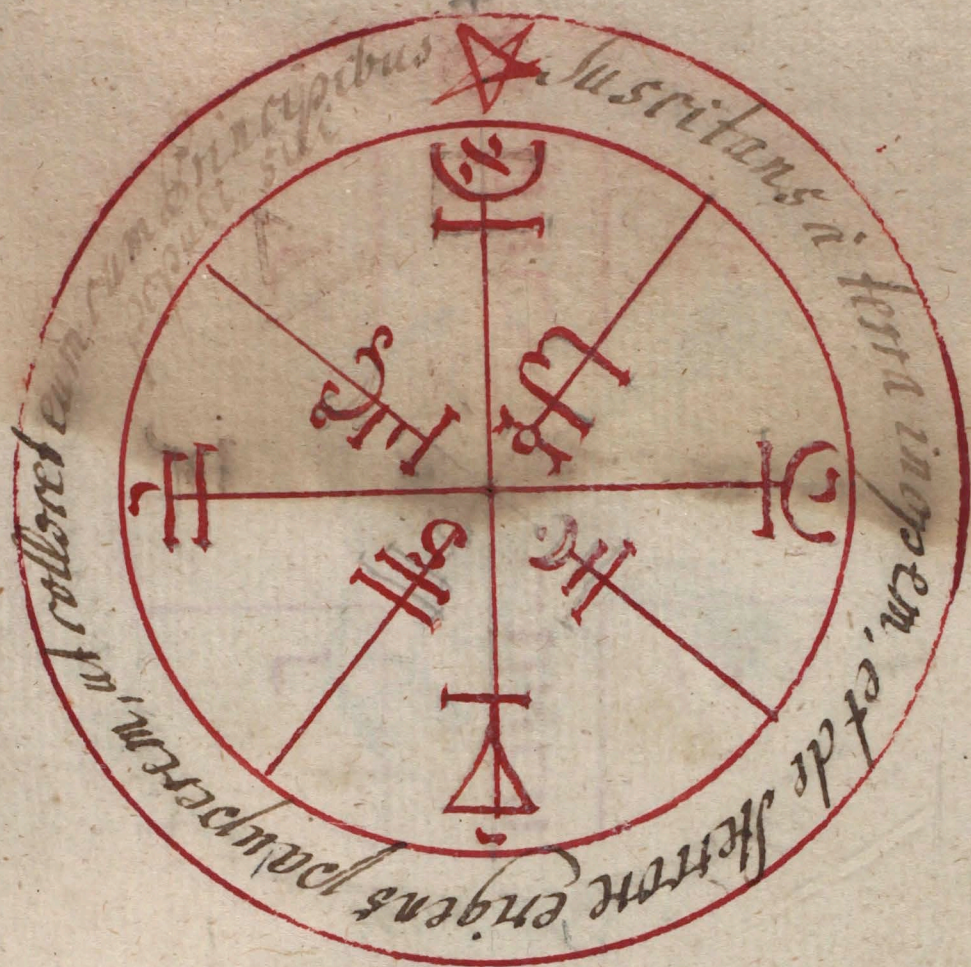 Suscitans à terrâ inopem, et de stercore erigens pauperem, ut collocet eum cum principibus
populi sui